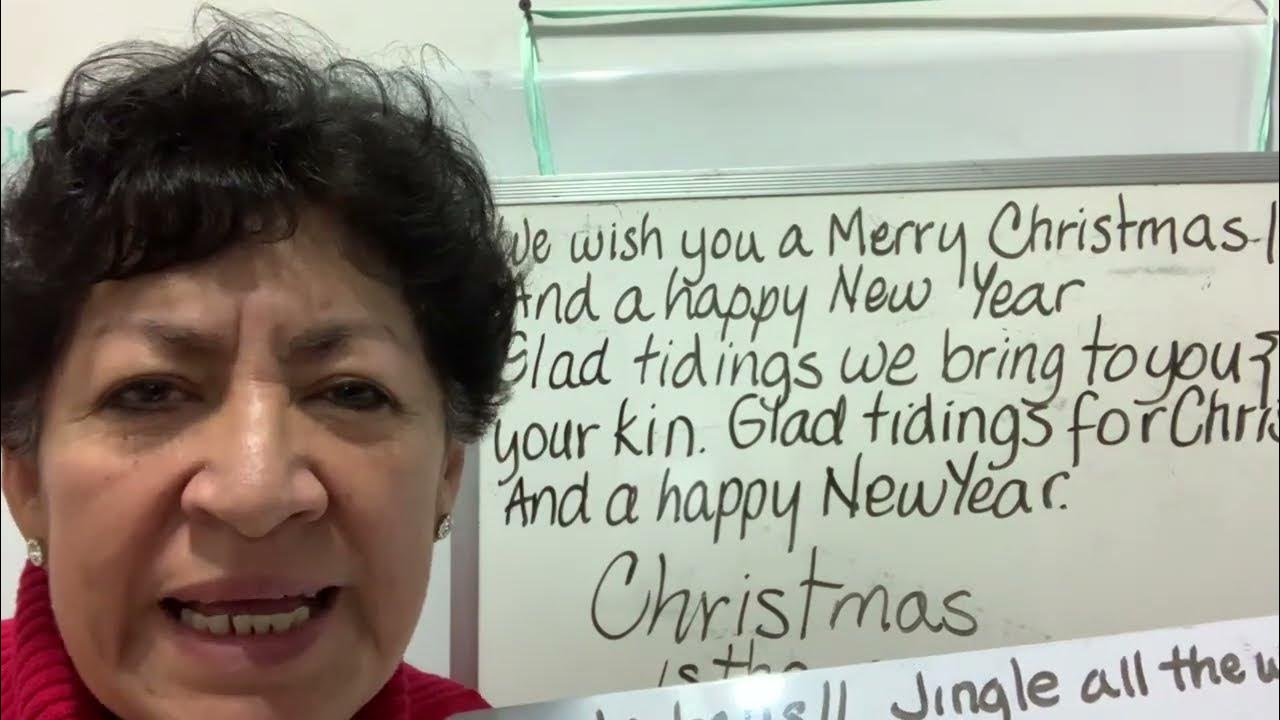 We wish you a Merry Christmas
And a happy New Year
Glad tidings we bring to you &
your kin. Glad tidings for Chris
And a happy New Year.
Christmas
is the
Jingle all the w